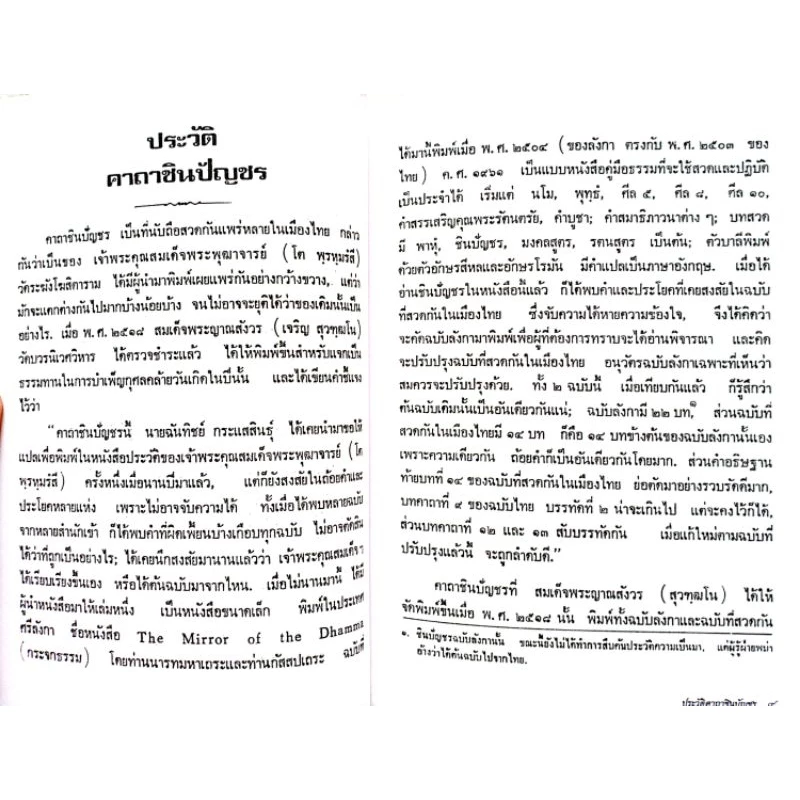 ประวัติ
คาถาชินปัญชร
คาถาชินบัญชร เป็นที่นับถือสวดกันแพร่หลายในเมืองไทย กล่าว
กันว่าเป็นของ เจ้าพระคุณสมเด็จพระพุฒาจารย์ (โต พฺรหฺมรํสี)
วัดระฆังโฆสิตาราม ได้มีผู้นำมาพิมพ์เผยแพร่กันอย่างกว้างขวาง, แต่ว่า
มักจะแตกต่างกันไปมากบ้างน้อยบ้าง จนไม่อาจจะยุติได้ว่าของเดิมนั้นเป็น
อย่างไร. เมื่อ พ.ศ. ๒๕๑๘ สมเด็จพระญาณสังวร (เจริญ สุวฑฺฒโน)
วัดบวรนิเวศวิหาร ได้ตรวจชำระแล้ว ได้ให้พิมพ์ขึ้นสำหรับแจกเป็น
ธรรมทานในการบำเพ็ญกุศลคล้ายวันเกิดในปีนั้น และได้เขียนคำชี้แจง
ไว้ว่า
“คาถาชินบัญชรนี้ นายฉันทิชย์ กระแสสินธุ์ ได้เคยนำมาขอให้
แปลเพื่อพิมพ์ในหนังสือประวัติของเจ้าพระคุณสมเด็จพระพุฒาจารย์ (โต
พฺรหฺมรํสี) ครั้งหนึ่งเมื่อนานปีมาแล้ว, แต่ก็ยังสงสัยในถ้อยคำและ
ประโยคหลายแห่ง เพราะไม่อาจจับความได้ ทั้งเมื่อได้พบหลายฉบับ
จากหลายสำนักเข้า ก็ได้พบคำที่ผิดเพี้ยนบ้างเกือบทุกฉบับ ไม่อาจตัดสิน
ได้ว่าที่ถูกเป็นอย่างไร; ได้เคยนึกสงสัยมานานแล้วว่า เจ้าพระคุณสมเด็จ ฯ
ได้เรียบเรียงขึ้นเอง หรือได้ต้นฉบับมาจากไหน. เมื่อไม่นานมานี้ ได้มี
ผู้นำหนังสือมาให้เล่มหนึ่ง เป็นหนังสือขนาดเล็ก พิมพ์ในประเทศ
ศรีลังกา ชื่อหนังสือ The Mirror of the Dhamma
(กระจกธรรม) โดยท่านนารทมหาเถระและท่านกัสสปเถระ ฉบับที่
ได้มานี้พิมพ์เมื่อ พ.ศ. ๒๕๐๔ (ของลังกา ตรงกับ พ.ศ. ๒๕๐๓ ของ
ไทย) ค.ศ. ๑๙๖๑ เป็นแบบหนังสือคู่มือธรรมที่จะใช้สวดและปฏิบัติ
เป็นประจำได้ เริ่มแต่ นโม, พุทธํ, ศีล ๕, ศีล ๘, ศีล ๑๐,
คำสรรเสริญคุณพระรัตนตรัย, คำบูชา; คำสมาธิภาวนาต่าง ๆ; บทสวด
มี พาหุํ, ชินบัญชร, มงคลสูตร, รตนสูตร เป็นต้น; ตัวบาลีพิมพ์
ด้วยตัวอักษรสีหลและอักษรโรมัน มีคำแปลเป็นภาษาอังกฤษ. เมื่อได้
อ่านชินบัญชรในหนังสือนี้แล้ว ก็ได้พบคำและประโยคที่เคยสงสัยในฉบับ
ที่สวดกันในเมืองไทย ซึ่งจับความได้หายความข้องใจ, จึงได้คิดว่า
จะคัดฉบับลังกามาพิมพ์เพื่อผู้ที่ต้องการทราบจะได้อ่านพิจารณา และคิด
จะปรับปรุงฉบับที่สวดกันในเมืองไทย อนุวัตรฉบับลังกาเฉพาะที่เห็นว่า
สมควรจะปรับปรุงด้วย. ทั้ง ๒ ฉบับนี้ เมื่อเทียบกันแล้ว ก็รู้สึกว่า
ต้นฉบับเดิมนั้นเป็นอันเดียวกันแน่; ฉบับลังกามี ๒๒ บท,๑ ส่วนฉบับที่
สวดกันในเมืองไทยมี ๑๔ บท ก็คือ ๑๔ บทข้างต้นของฉบับลังกานั้นเอง
เพราะความเดียวกัน ถ้อยคำก็เป็นอันเดียวกันโดยมาก. ส่วนคำอธิษฐาน
ท้ายบทที่ ๑๔ ของฉบับที่สวดกันในเมืองไทย ย่อตัดมาอย่างรวบรัดดีมาก,
บทคาถาที่ ๙ ของฉบับไทย บรรทัดที่ ๒ น่าจะเกินไป แต่จะคงไว้ก็ได้,
ส่วนบทคาถาที่ ๑๒ และ ๑๓ สับบรรทัดกัน เมื่อแก้ใหม่ตามฉบับที่
ปรับปรุงแล้วนี้ จะถูกลำดับดี.”
คาถาชินบัญชรที่ สมเด็จพระญาณสังวร (สุวฑฺฒโน) ได้ให้
จัดพิมพ์ขึ้นเมื่อ พ.ศ. ๒๕๑๘ นั้น พิมพ์ทั้งฉบับลังกาและฉบับที่สวดกัน
๑. ชินบัญชรฉบับลังกานั้น ขณะนี้ยังไม่ได้ทำการสืบค้นประวัติความเป็นมา, แต่ผู้รู้ฝ่ายพม่า
อ้างว่าได้ต้นฉบับไปจากไทย.
ประวัติคาถาชินบัญชร